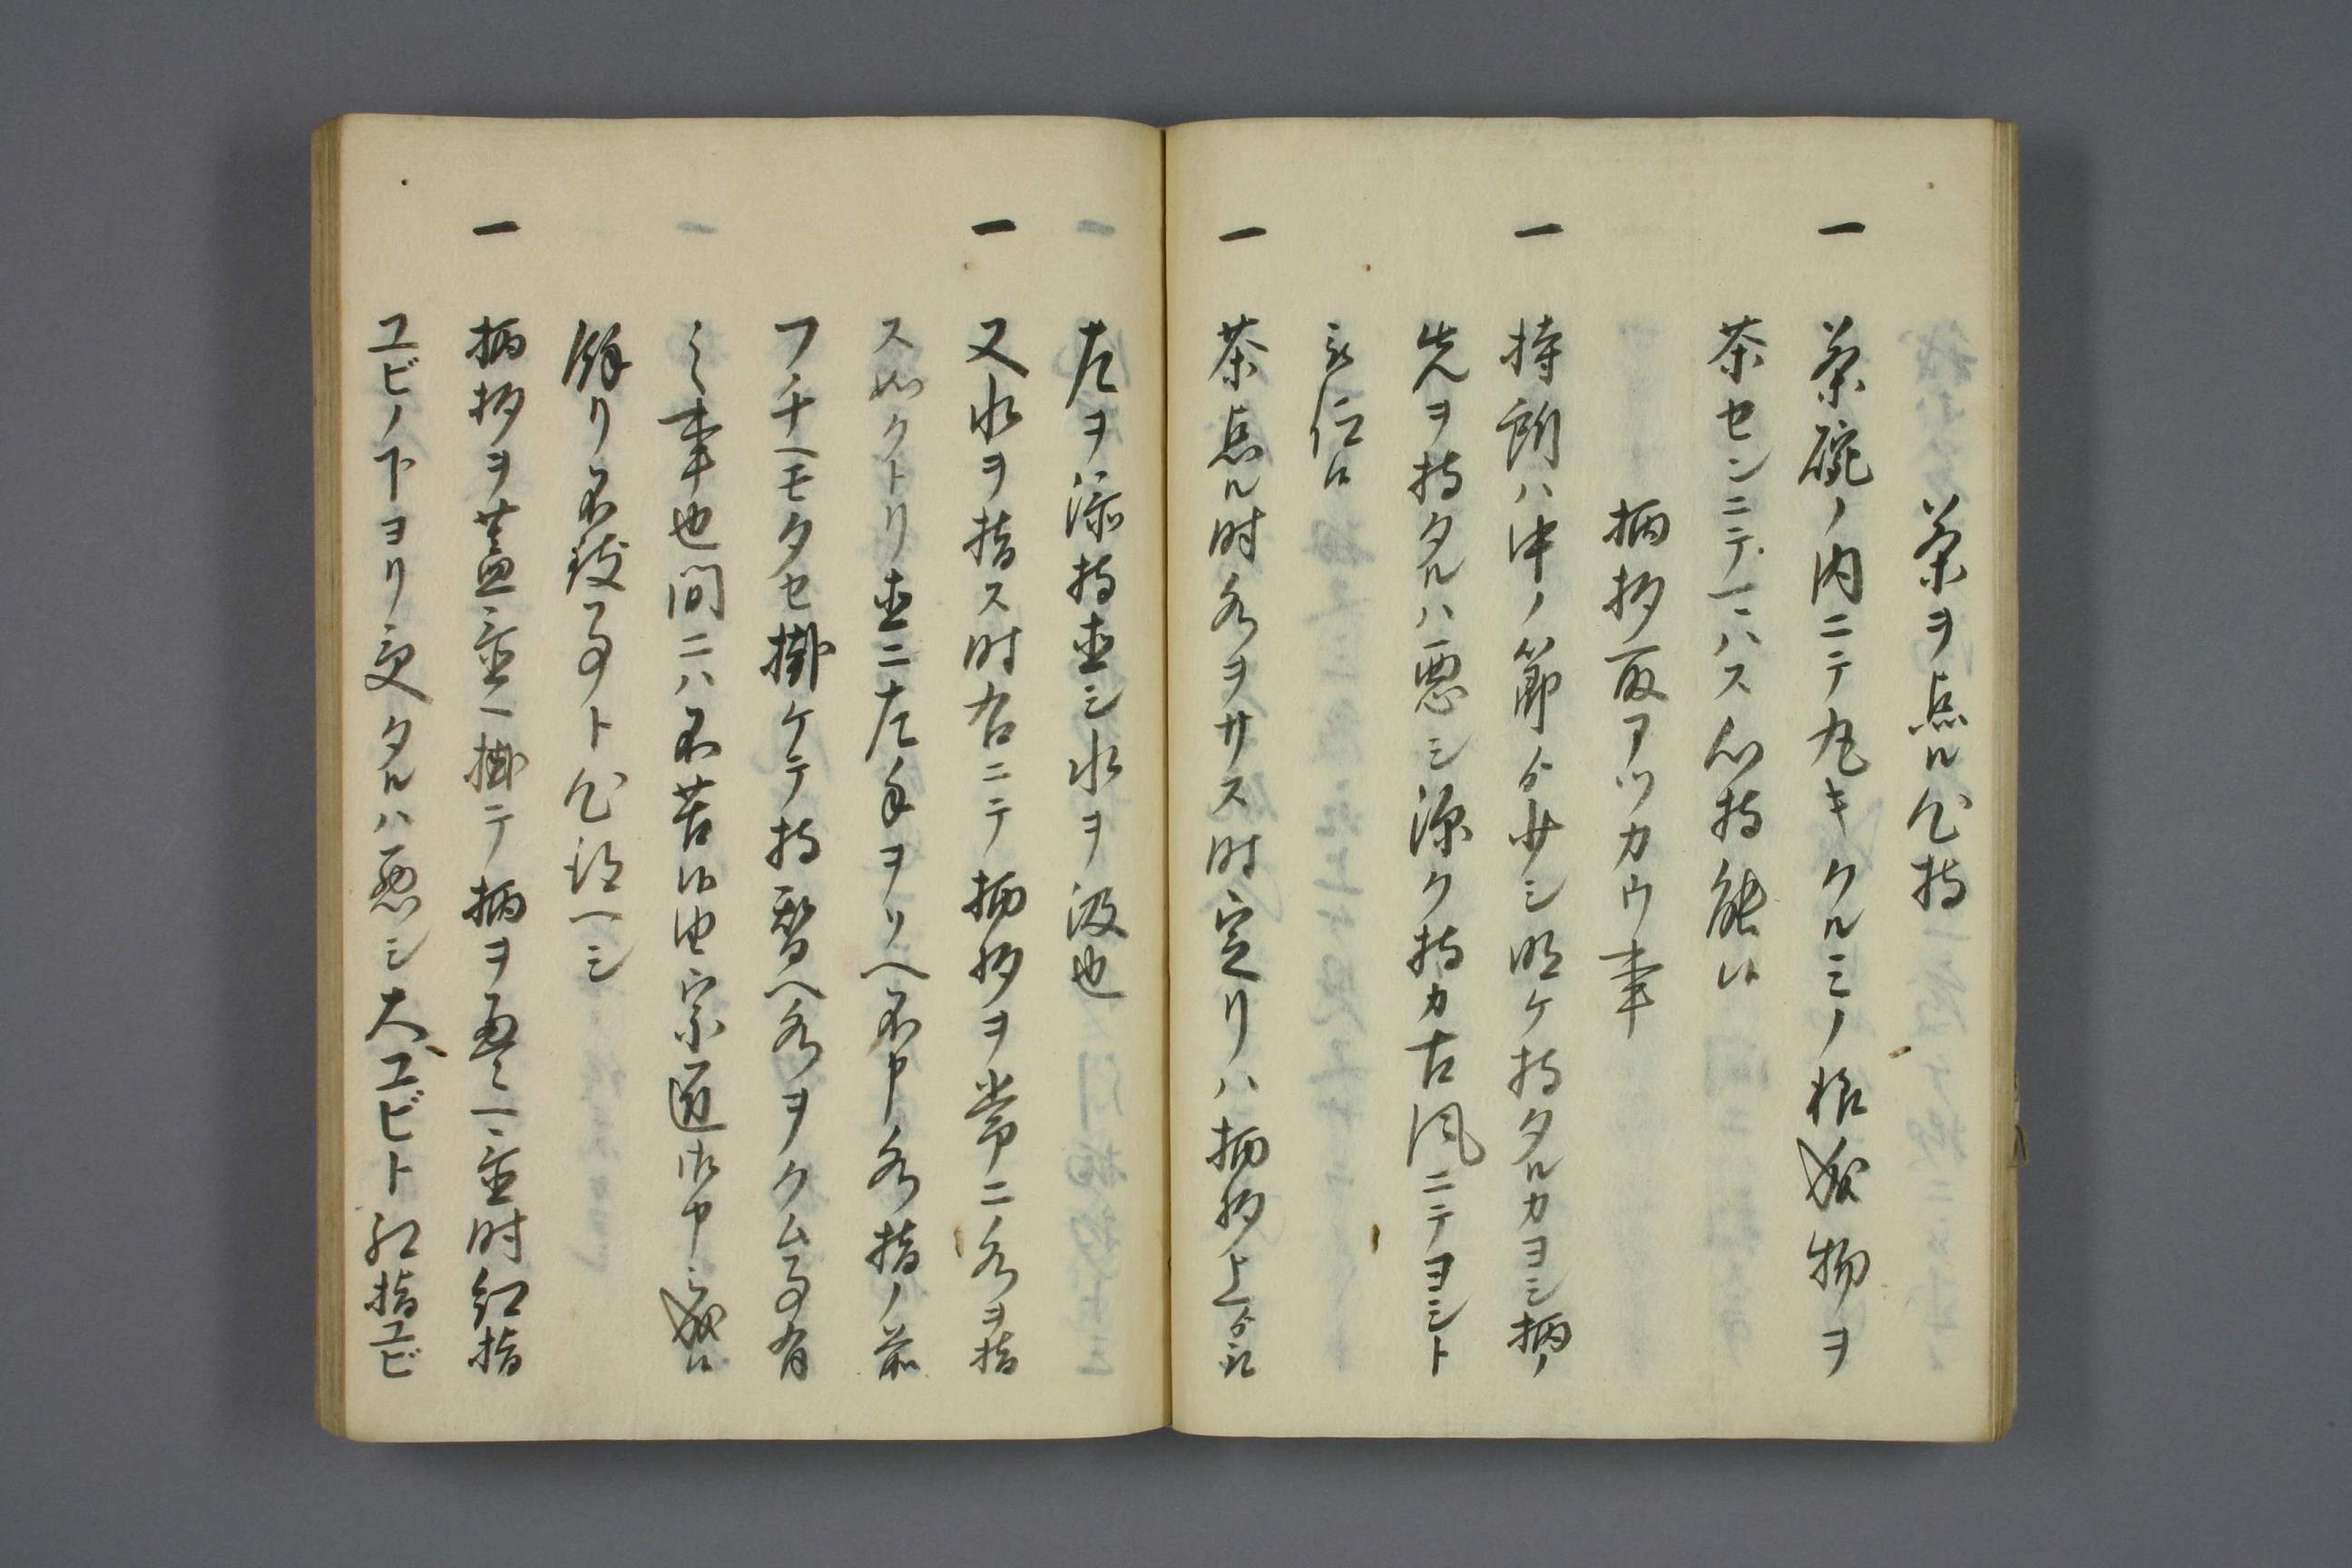 茶ヲ点ル心持
一 茶碗ノ内ニテ丸キクルミノ様成物ヲ
茶センニテマハス心持能候
柄杓取アツカウ事
一 持所ハ中ノ節ゟ少シ明ケ持タルカヨシ柄ノ
先ヲ持タルハ悪シ深ク持カ古風ニテヨシト
被仰候
一 茶点ル時水ヲサス時定リハ柄杓上ゟ取
左ヲ添持直シ水ヲ汲也
一 又水ヲ指ス時右ニテ柄杓ヲ常ニ水ヲ指
ス如クトリ直ニ左手ヲソヘ不申水指ノ前
フチヘモタセ掛ケテ持替ヘ水ヲクム事有
之事也間ニハ不苦候由宗匠御申被成候
餘リ不致事ト心得ヘシ
一 柄杓ヲ蓋置ヘ掛テ柄ヲ畳ヘ置時紅指
ユビノ下ヨリ交タルハ悪シ大ユビト紅指ユビ